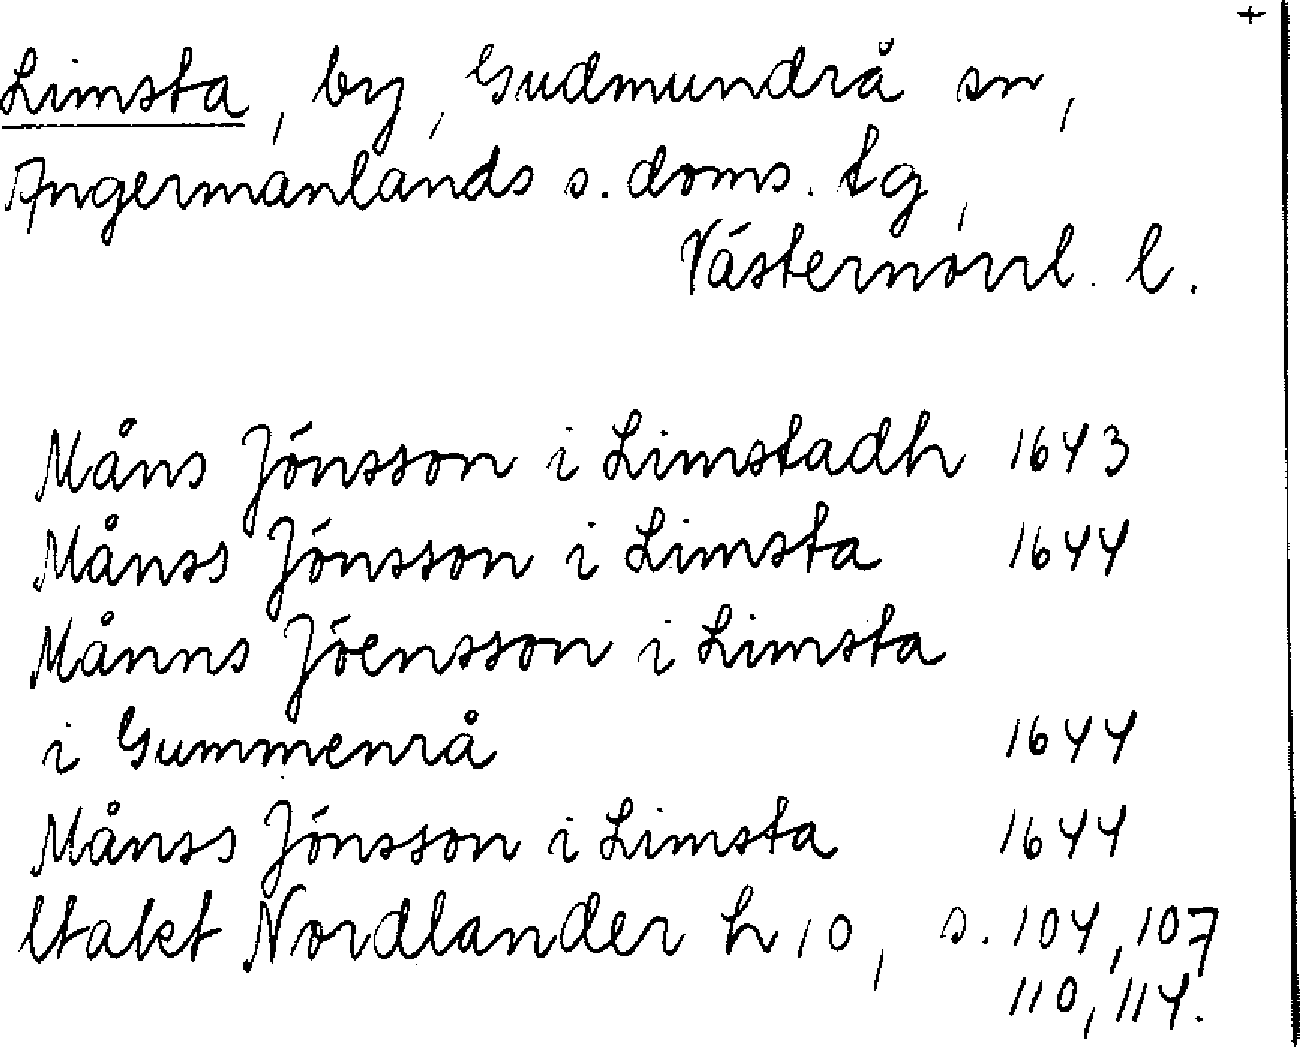 +
Limsta, by, Gudmundrå sn,
Ångermanlands s. doms. tg,
Västernorrl. l.
Måns Jönsson i Limstadh 1643
Månss Jönsson i Limsta 1644
Månns Jöensson i Limsta
i Gummenrå 1644
Månss Jönsson i Limsta 1644
Utakt Nordlander h 10, s. 104, 107
110, 114.